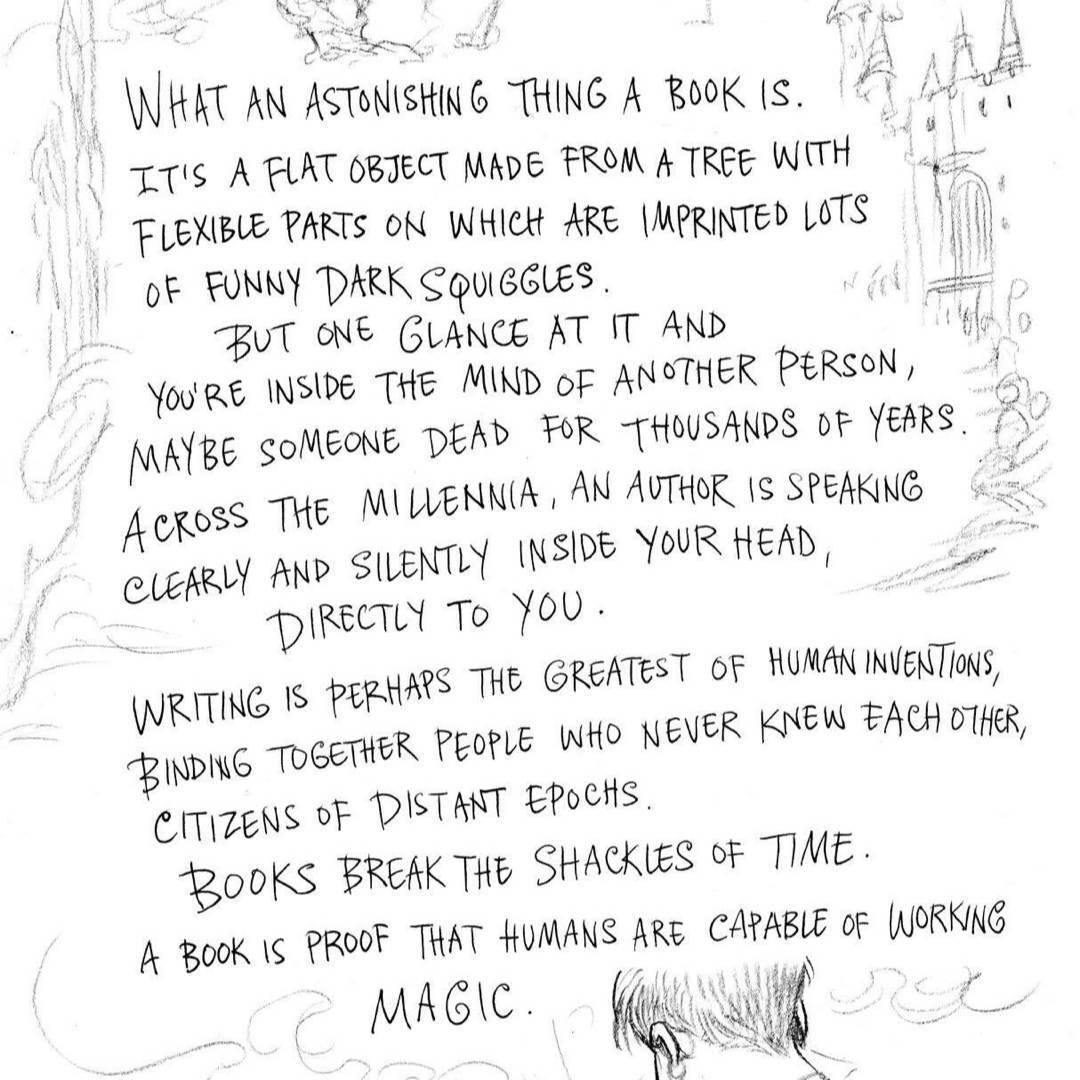 WHAT AN ASTONISHING THING A BOOK IS.
IT'S A FLAT OBJECT MADE FROM A TREE WITH
FLEXIBLE PARTS ON WHICH ARE IMPRINTED LOTS
OF FUNNY DARK SQUIGGLES.
BUT ONE GLANCE AT IT AND
YOU'RE INSIDE THE MIND OF ANOTHER PERSON,
MAYBE SOMEONE DEAD FOR THOUSANDS OF YEARS.
ACROSS THE MILLENNIA, AN AUTHOR IS SPEAKING
CLEARLY AND SILENTLY INSIDE YOUR HEAD,
DIRECTLY TO YOU.
WRITING IS PERHAPS THE GREATEST OF HUMAN INVENTIONS,
BINDING TOGETHER PEOPLE WHO NEVER KNEW EACH OTHER,
CITIZENS OF DISTANT EPOCHS.
BOOKS BREAK THE SHACKLES OF TIME.
A BOOK IS PROOF THAT HUMANS ARE CAPABLE OF WORKING
MAGIC.